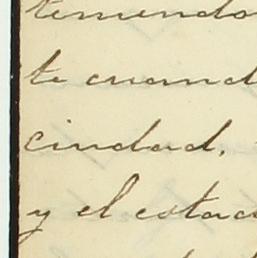 temiendo
te cuand
ciudad,
y el estad